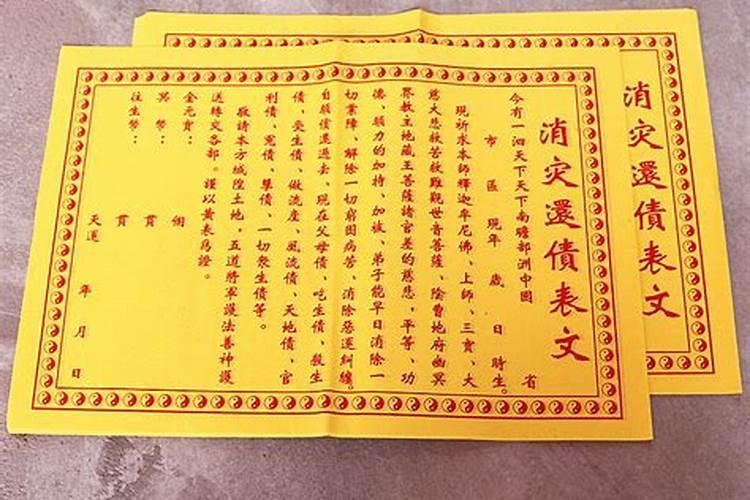 消灾還債表文
今有一泗天下天下南瞻部洲中國 省
市 區 現年 歲 日 時生。
現祈求本師釋迦牟尼佛、上師、三寶、大
慈大悲救苦救難觀世音菩薩、陰曹地府幽冥
界教主地藏王菩薩諸官差的慈悲,平等、功
德、願力的加持、加被、弟子能早日消除一
切業障、解除一切窮困病苦、消除惡運糾纏。
自願償還過去、現在父母債、吃生債、殺生
債、受生債、做流產、風流債、天地債、官
利債、冤債、孽債、一切眾生債等。
敬請本方城隍土地,五道將軍護法善神護
送轉交各部。謹以黃表爲證。
金元寶: 個
冥幣: 貫
往生幣: 貫
天運 年 月 日
消灾還債表文